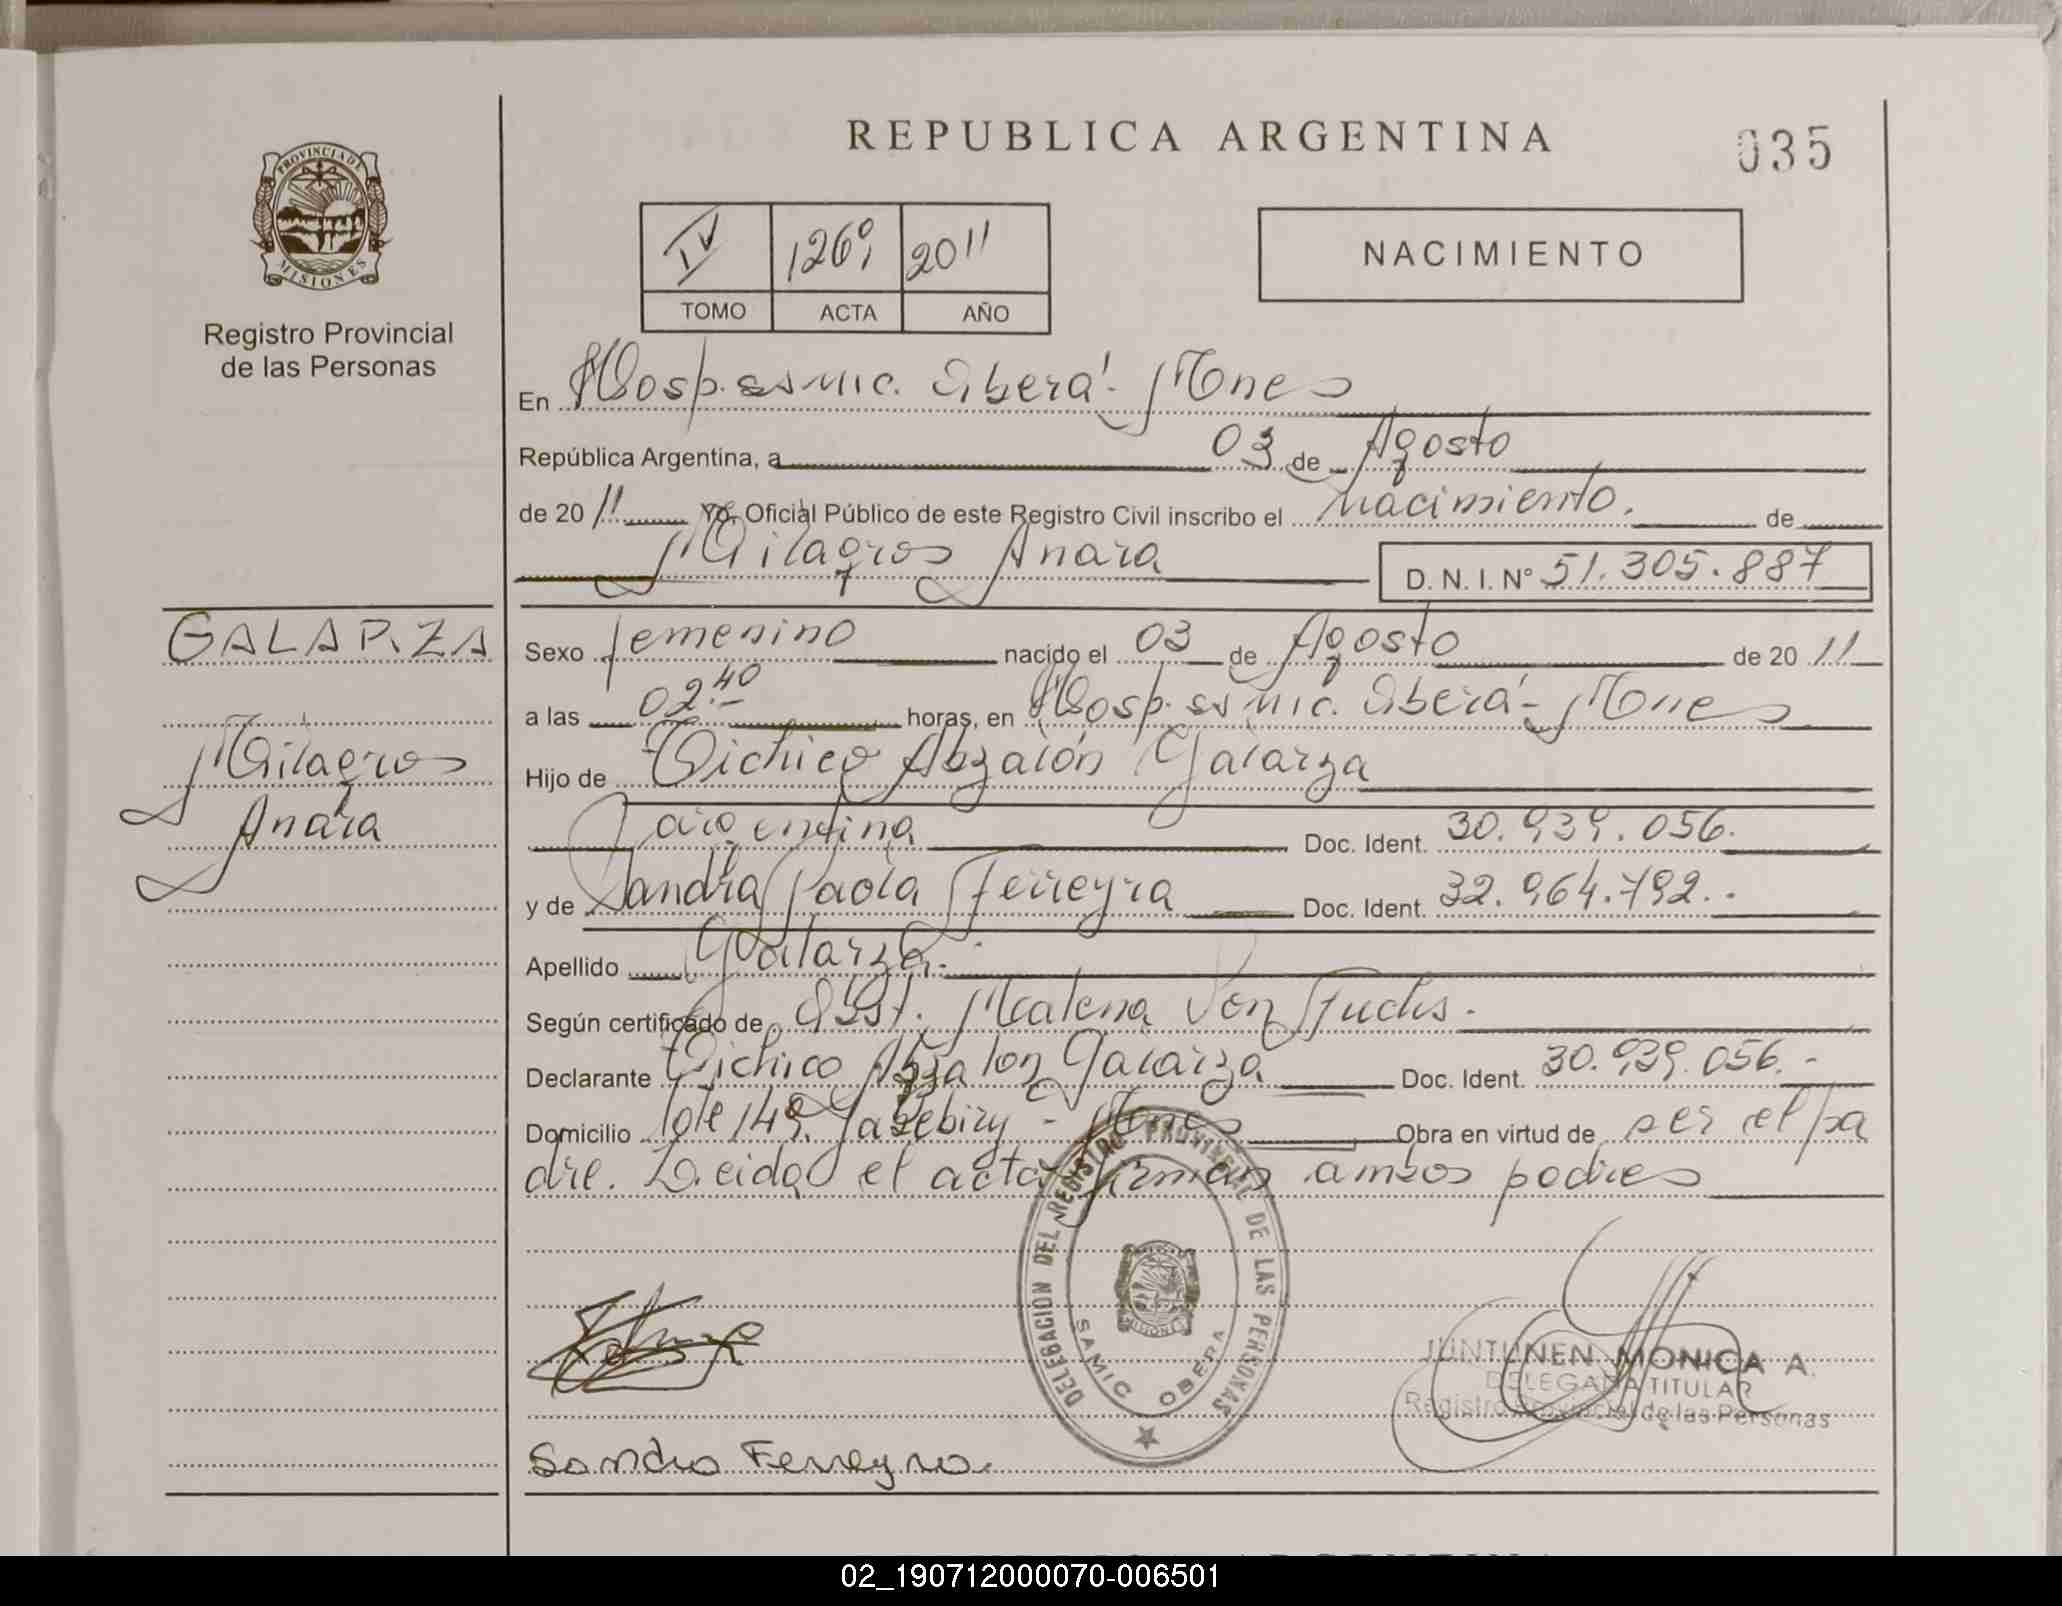 REPUBLICA ARGENTINA
035
PROVINCIA DE
MISIONES
Registro Provincial
de las Personas
IV 1269 2011
TOMO ACTA AÑO
NACIMIENTO
En Hosp. Samic. Oberá - Mnes
República Argentina, a 03 de Agosto
de 2011 Yo, Oficial Público de este Registro Civil inscribo el nacimiento. de
Milagros Anara
D. N. I. N° 51.305.887
GALARZA
Milagros
Anara
Sexo femenino nacido el 03 de Agosto de 2011
a las 02.40 horas, en Hosp. Samic. Oberá - Mnes
Hijo de Abzalón Galarza
argentina Doc. Ident. 30.939.056.
y de Sandra Paola Ferreyra Doc. Ident. 32.964.792.-
Apellido Galarza.-
Según certificado de Obst. Malena Von Fuchs.
Declarante Abzalon Galarza Doc. Ident. 30.939.056.-
Domicilio lote 149. Yabebiry - Mnes Obra en virtud de ser el pa
dre. Leida el acta firman ambos padres
DELEGACION DEL REGISTRO PROVINCIAL DE LAS PERSONAS
MISIONES
SAMIC OBERA
JUNTUNEN MONICA A.
DELEGADA TITULAR
Registro Provincial de las Personas
Sandra Ferreyra.
02_190712000070-006501